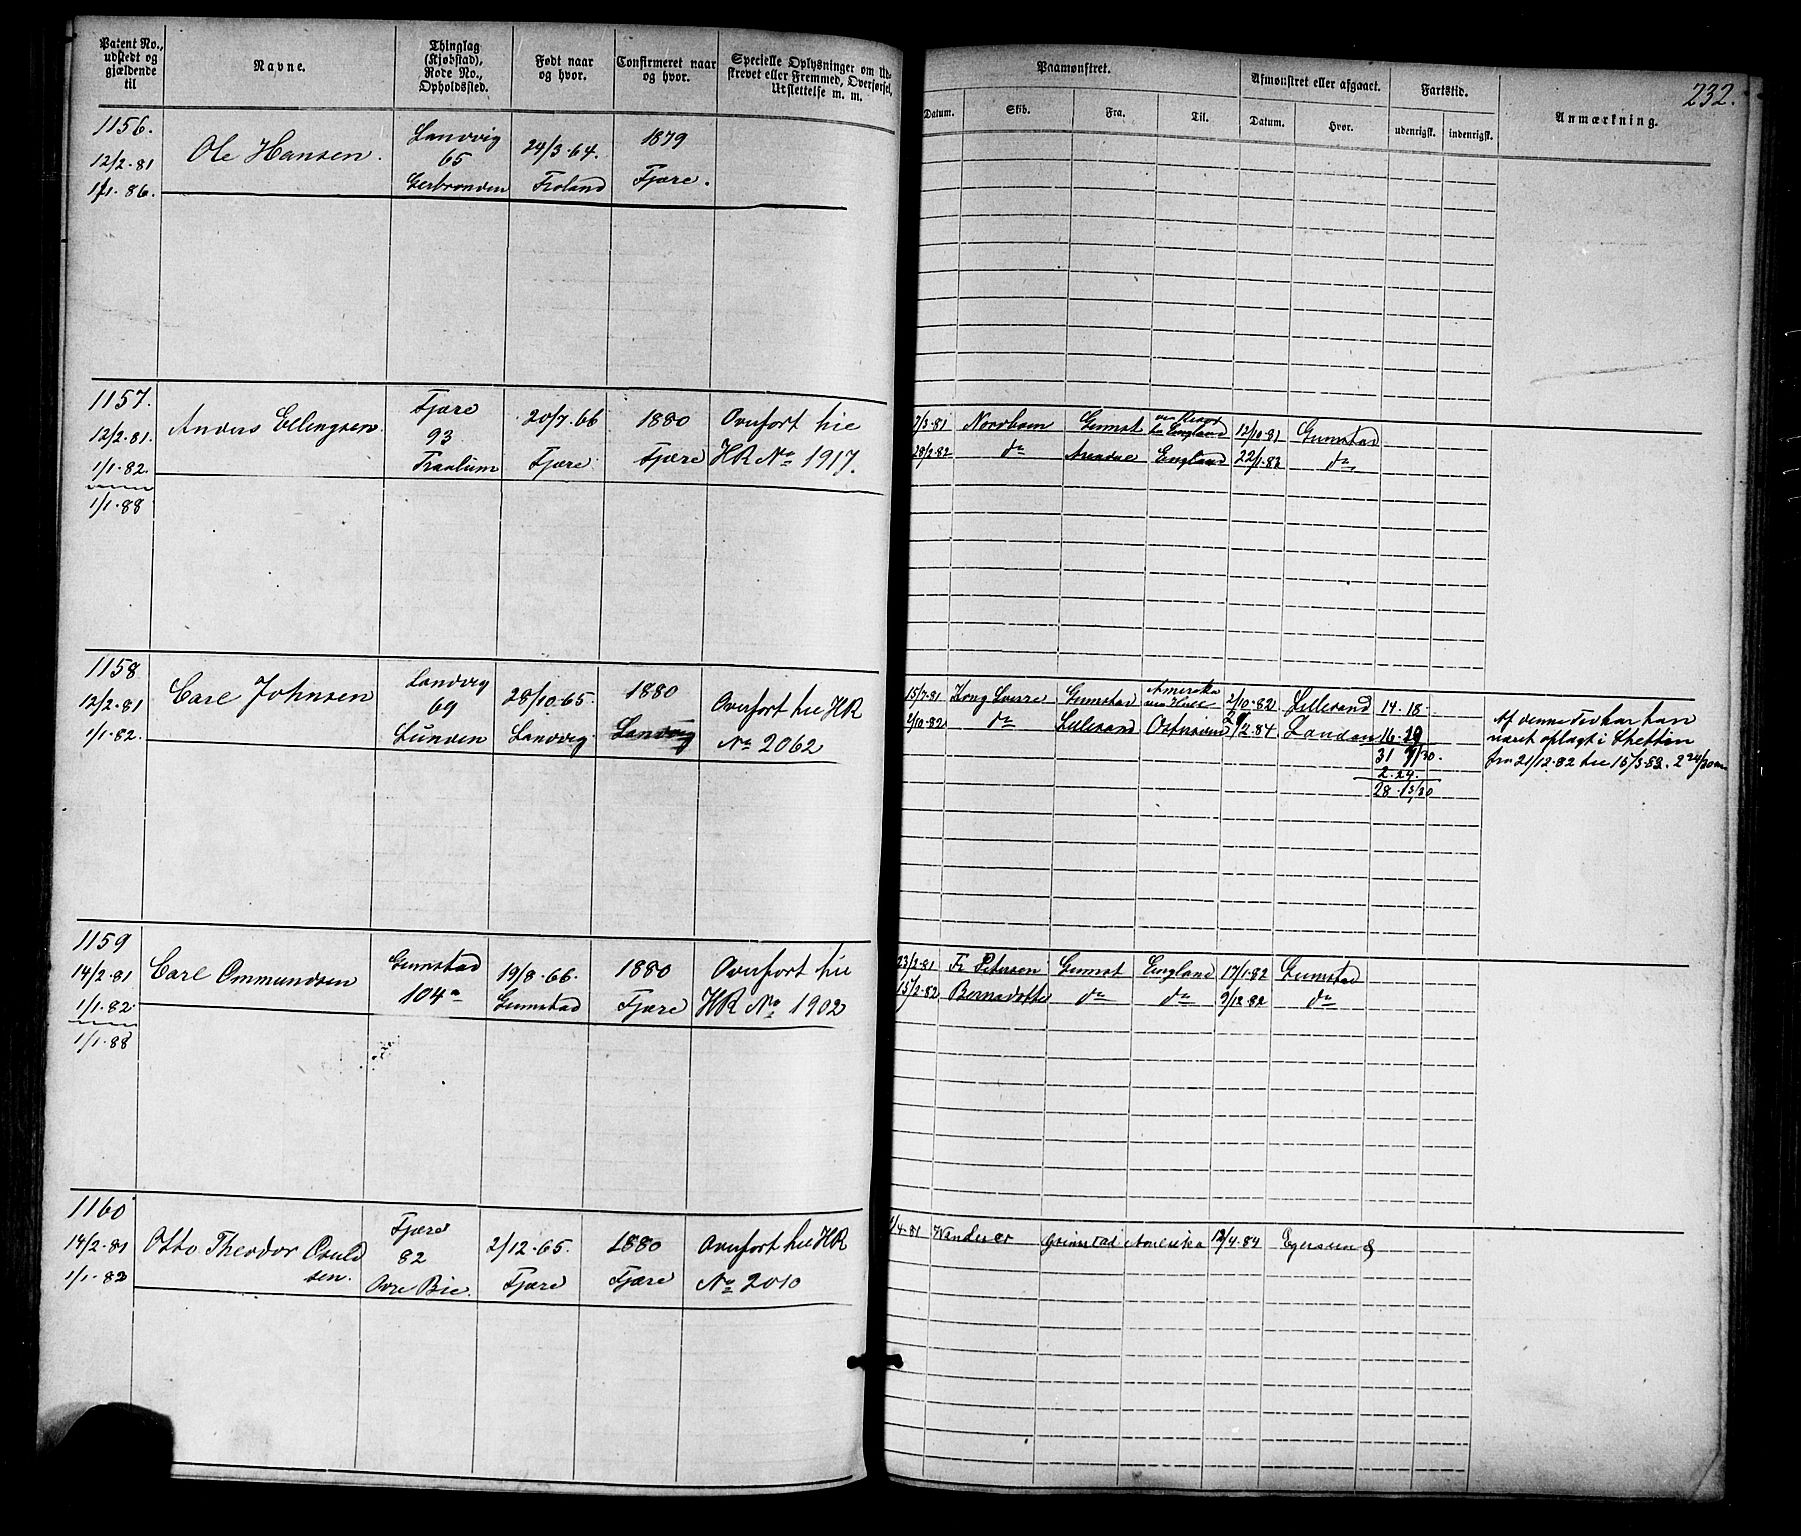 232.
Patent No., udstedt og gjældende til
Navne.
Thinglag (Kjøbstad), Rode No., Opholdssted.
Født naar og hvor.
Confirmeret naar og hvor.
Specielle Oplysninger om Ud-
skrevet eller Fremmed, Overførsel,
Udslettelse m. m.
Paamønstret.
Afmønstret eller afgaaet.
Fartstid.
Anmærkning.
Datum. Skib. Fra. Til. Datum. Hvor. udenrigsk. indenrigsk.
1156.
12/2-81
1/1-86.
Ole Hansen.
Landvig
65
24/3-64.
Froland
1879
Fjære.
1157.
12/2-81.
1/1-82
1/1-88
Anders Ellingsen
Fjære
93
20/7-66
Fjære
1880
Fjære
Overført til
HR No 1917.
Grimst
England
12/10-81
Grimstad
28/2-82
do
Arendal
England
22/1-83
do
1158
12/2-81
1/1-82.
Carl Johnsen
Landvig
69
Lunden
28/10-65.
Landvig
1880
Landvig
Overført til HR
No 2062
15/7-81
Kong Sverre
Grimstad
Amerika
2/10-82
Lillesand
14-18
2/10-82
do
Lillesand
Østersøen
London
31
2-24.
Af denne Tid har han
været oplagt i Stettin
fra 21/12-82 til 15/3-83.
1159
14/2-81
1/1-82
1/1-88
Carl Ommundsen
Grimstad
104a
19/8-66.
Grimstad
1880
Fjære
Overført til
HR No 1902
23/2-81
Fr Petersen
Grimst
England
17/1-82
Grimstad
15/2-82
Bernadotte
do
do
9/12-82
do
1160
14/2-81
1/1-82
Otto Theodor Osuld
sen.
Fjære
82
Øvre Bie.
2/12-65.
Fjære
1880
Fjære
Overført til HR
No 2010
Wanderer
Grimstad
Amerika
12/4-84
Egersund